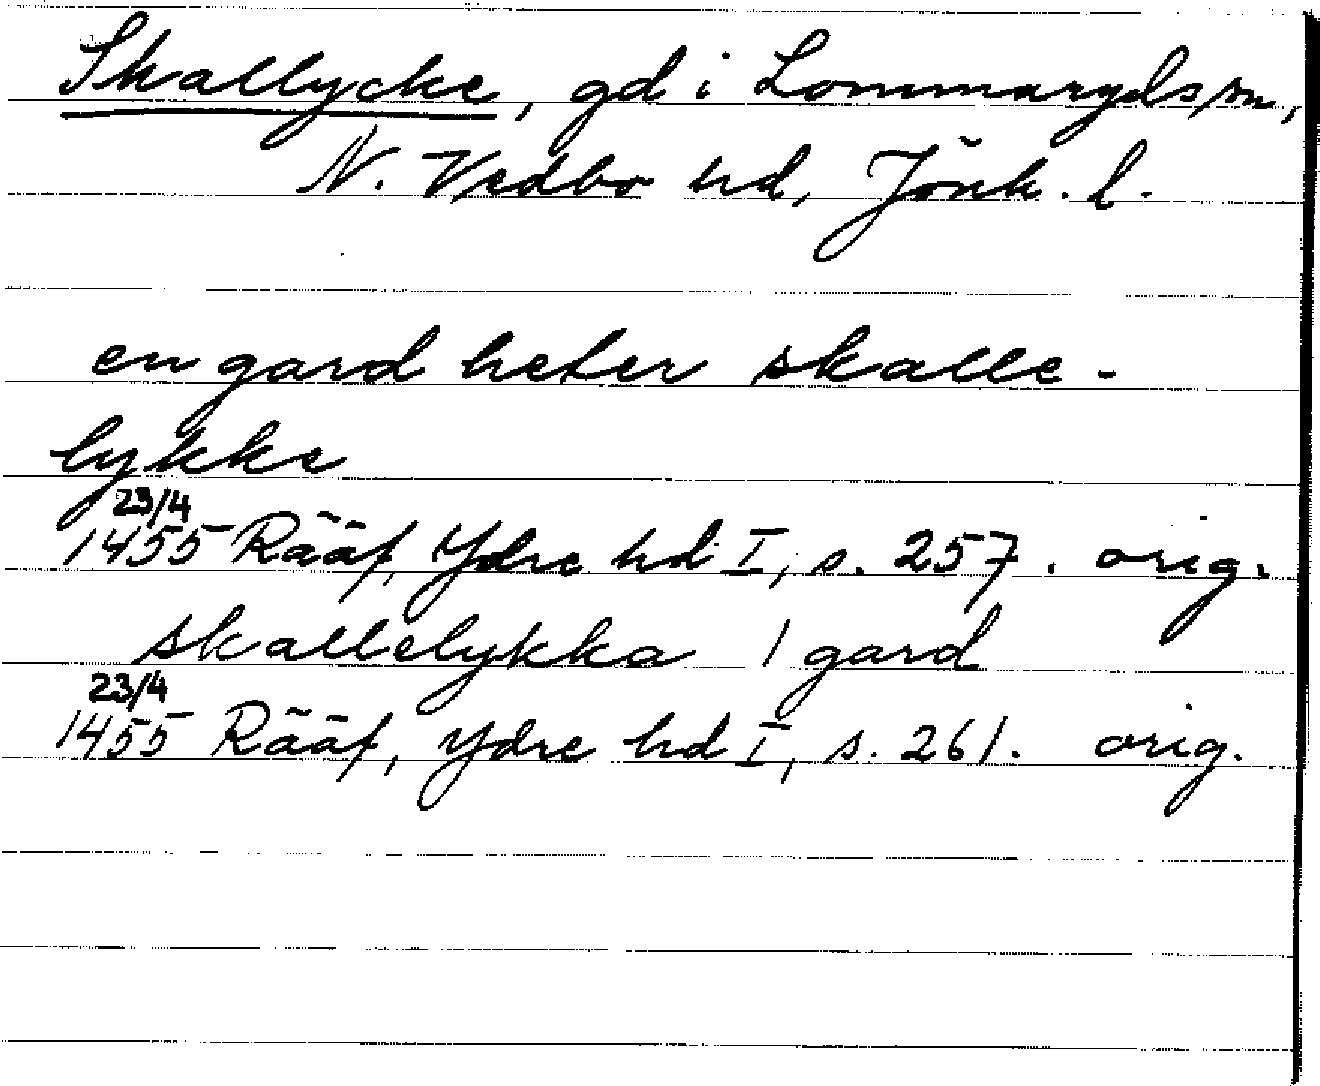 Skallycke, gd i Lommaryds sn,
N. Vedbo hd, Jönk. l.
en gard heter skalle-
lykke
23/4
1455 Rääf, Ydre hd I, s. 257. orig.
skallelykka 1 gard
23/4
1455 Rääf, Ydre hd I, s. 261. orig.